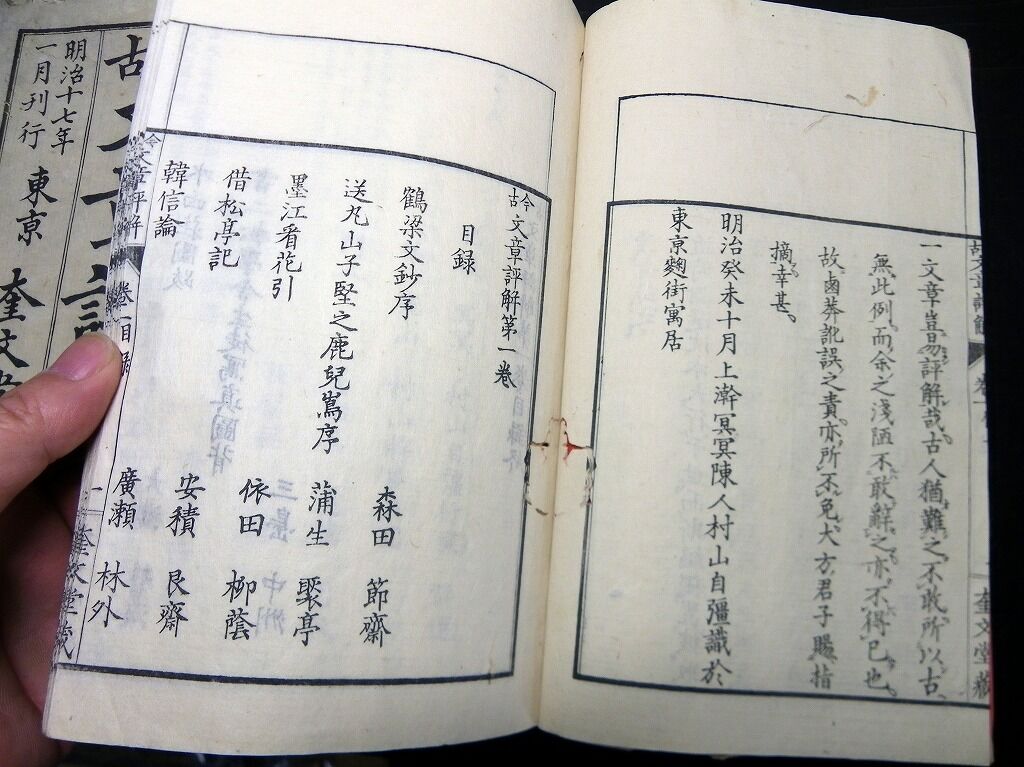 一文章豈易評解哉古人猶難之不敢所以古
無此例而余之淺陋不敢辭之亦不得已也
故鹵莽訛誤之責亦所不免大方君子賜指
摘幸甚
明治癸未十月上澣冥冥陳人村山自彊識於
東京麴街寓居
奎文堂藏
古今文章評解第一卷
目録
鶴梁文鈔序 森田 節齋
送丸山子堅之鹿兒嶌序 蒲生 褧亭
墨江看花引 依田 柳蔭
借松亭記 安積 艮齋
韓信論 廣瀬 林外
今文章評解 卷一目録 一 奎文堂藏
明治十七年
一月刊行 東京 奎文